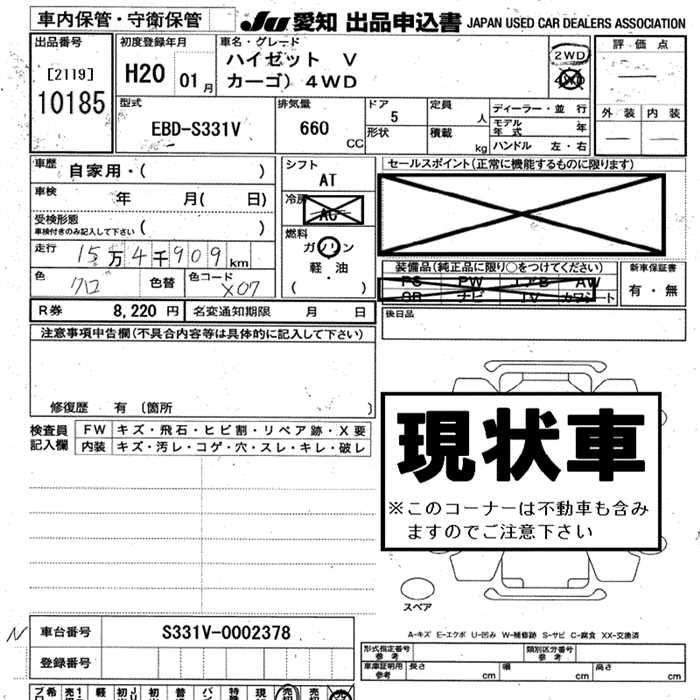 車内保管・守衛保管
JU 愛知 出品申込書 JAPAN USED CAR DEALERS ASSOCIATION
出品番号
[2119]
10185
初度登録年月
H20 01月
車名・グレード
ハイゼット V
カーゴ) 4WD
2WD
4WD
評価点
外装 内装
型式
EBD-S331V
排気量
660 CC
ドア
5
形状
定員
人
積載
kg
ディーラー・並行
モデル年式 年
ハンドル 左・右
車歴 自家用・( )
車検 年 月( 日)
受検形態
車検付きのみ記入して下さい ( )
走行 15万4千909km
色 クロ 色替 色コード X07
シフト
AT
冷房
AC
燃料
ガソリン
軽・油
( ・ )
セールスポイント(正常に機能するものに限ります)
装備品(純正品に限り○をつけてください)
PS PW エアB AW
SR ナビ TV カワシート
新車保証書
有・無
R券 8,220円 名変通知期限 月 日
後日品
注意事項申告欄(不具合内容等は具体的に記入して下さい)
修復歴 有(箇所 )
検査員記入欄
FW キズ・飛石・ヒビ割・リペア跡・X要
内装 キズ・汚レ・コゲ・穴・スレ・キレ・破レ
現状車
※このコーナーは不動車も含み
ますのでご注意下さい
スペア
A-キズ E-エクボ U-凹み W-補修跡 S-サビ C-腐食 XX-交換済
N 車台番号 S331V-0002378
登録番号
形式指定番号 参考
類別区分番号 参考
車庫証明用 参考 長さ cm 幅 cm 高さ cm